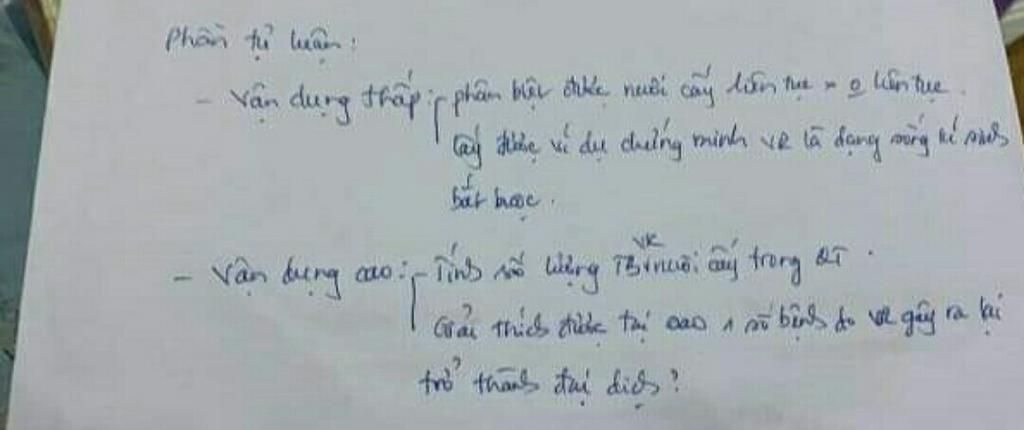 Phần tự luận:
- Vận dụng thấp: phân biệt được nuôi cấy liên tục × o liên tục.
Lấy được ví dụ chứng minh VR là dạng sống kí sinh
bắt buộc.
- Vận dụng cao: - Tính số lượng TB VK nuôi cấy trong QT.
Giải thích được tại sao 1 số bệnh do VR gây ra lại
trở thành đại dịch?